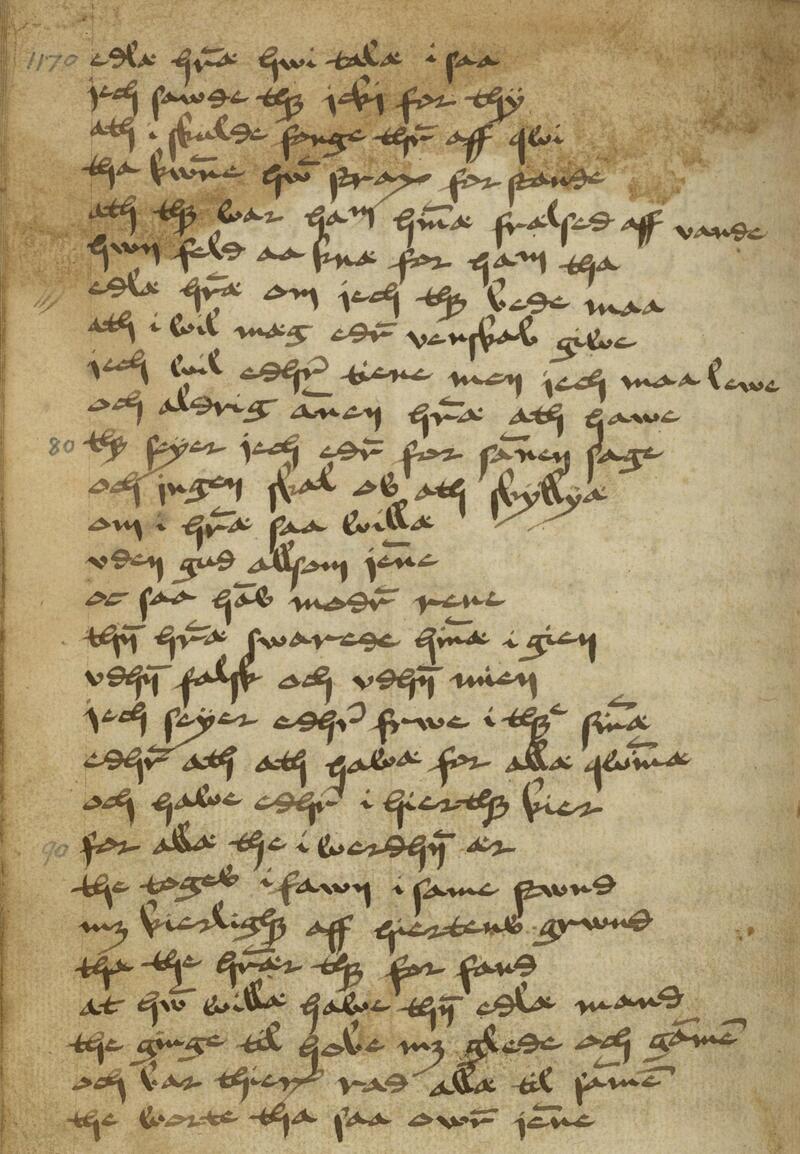 1170 edlæ hr̄æ hwi talæ i saa
jech sawde thꝫ icki for thy
ath i skulde fonge thr̄ aff qwi
tha kwn̄e hw̄ strax for stande
ath thꝫ war ham hm̄æ frælsed aff vande
hwn feld aa knæ for ham tha
edlæ hr̄æ om jech thꝫ bede maa
ath i wil mæg edr̄ venskab giwe
jech wil edhr̄ tiene men jech maa lewe
och aldrig an̄en hr̄æ ath hawe
80 thꝫ seyer jech edr̄ for san̄en sage
och jngen skal os ath skyllyæ
om i hr̄æ saa willæ
vden gud allsom jen̄e
oc saa hās modr̄ rene
thn̄ hr̄æ swarede hm̄æ i gien
vdhn̄ falsk och vdhn̄ mien
jech seyer edhr̄ frwe i thꝫe sin̄æ
edhr̄ ath ath hawæ for allæ qwin̄æ
och hawe edhr̄ i hierthꝫ kier
90 for allæ the i werdhn̄ ær
the toges i fawn i same stwnd
mꝫ kierlighꝫ aff hiertens grwnd
tha the hr̄ær thꝫ for fand
at hw̄ willæ hawe thn̄ edlæ mand
the ginge til hobe mꝫ glede och gām̄e
och war thier rad allæ til sām̄e
the worte tha saa owr̄ jen̄e